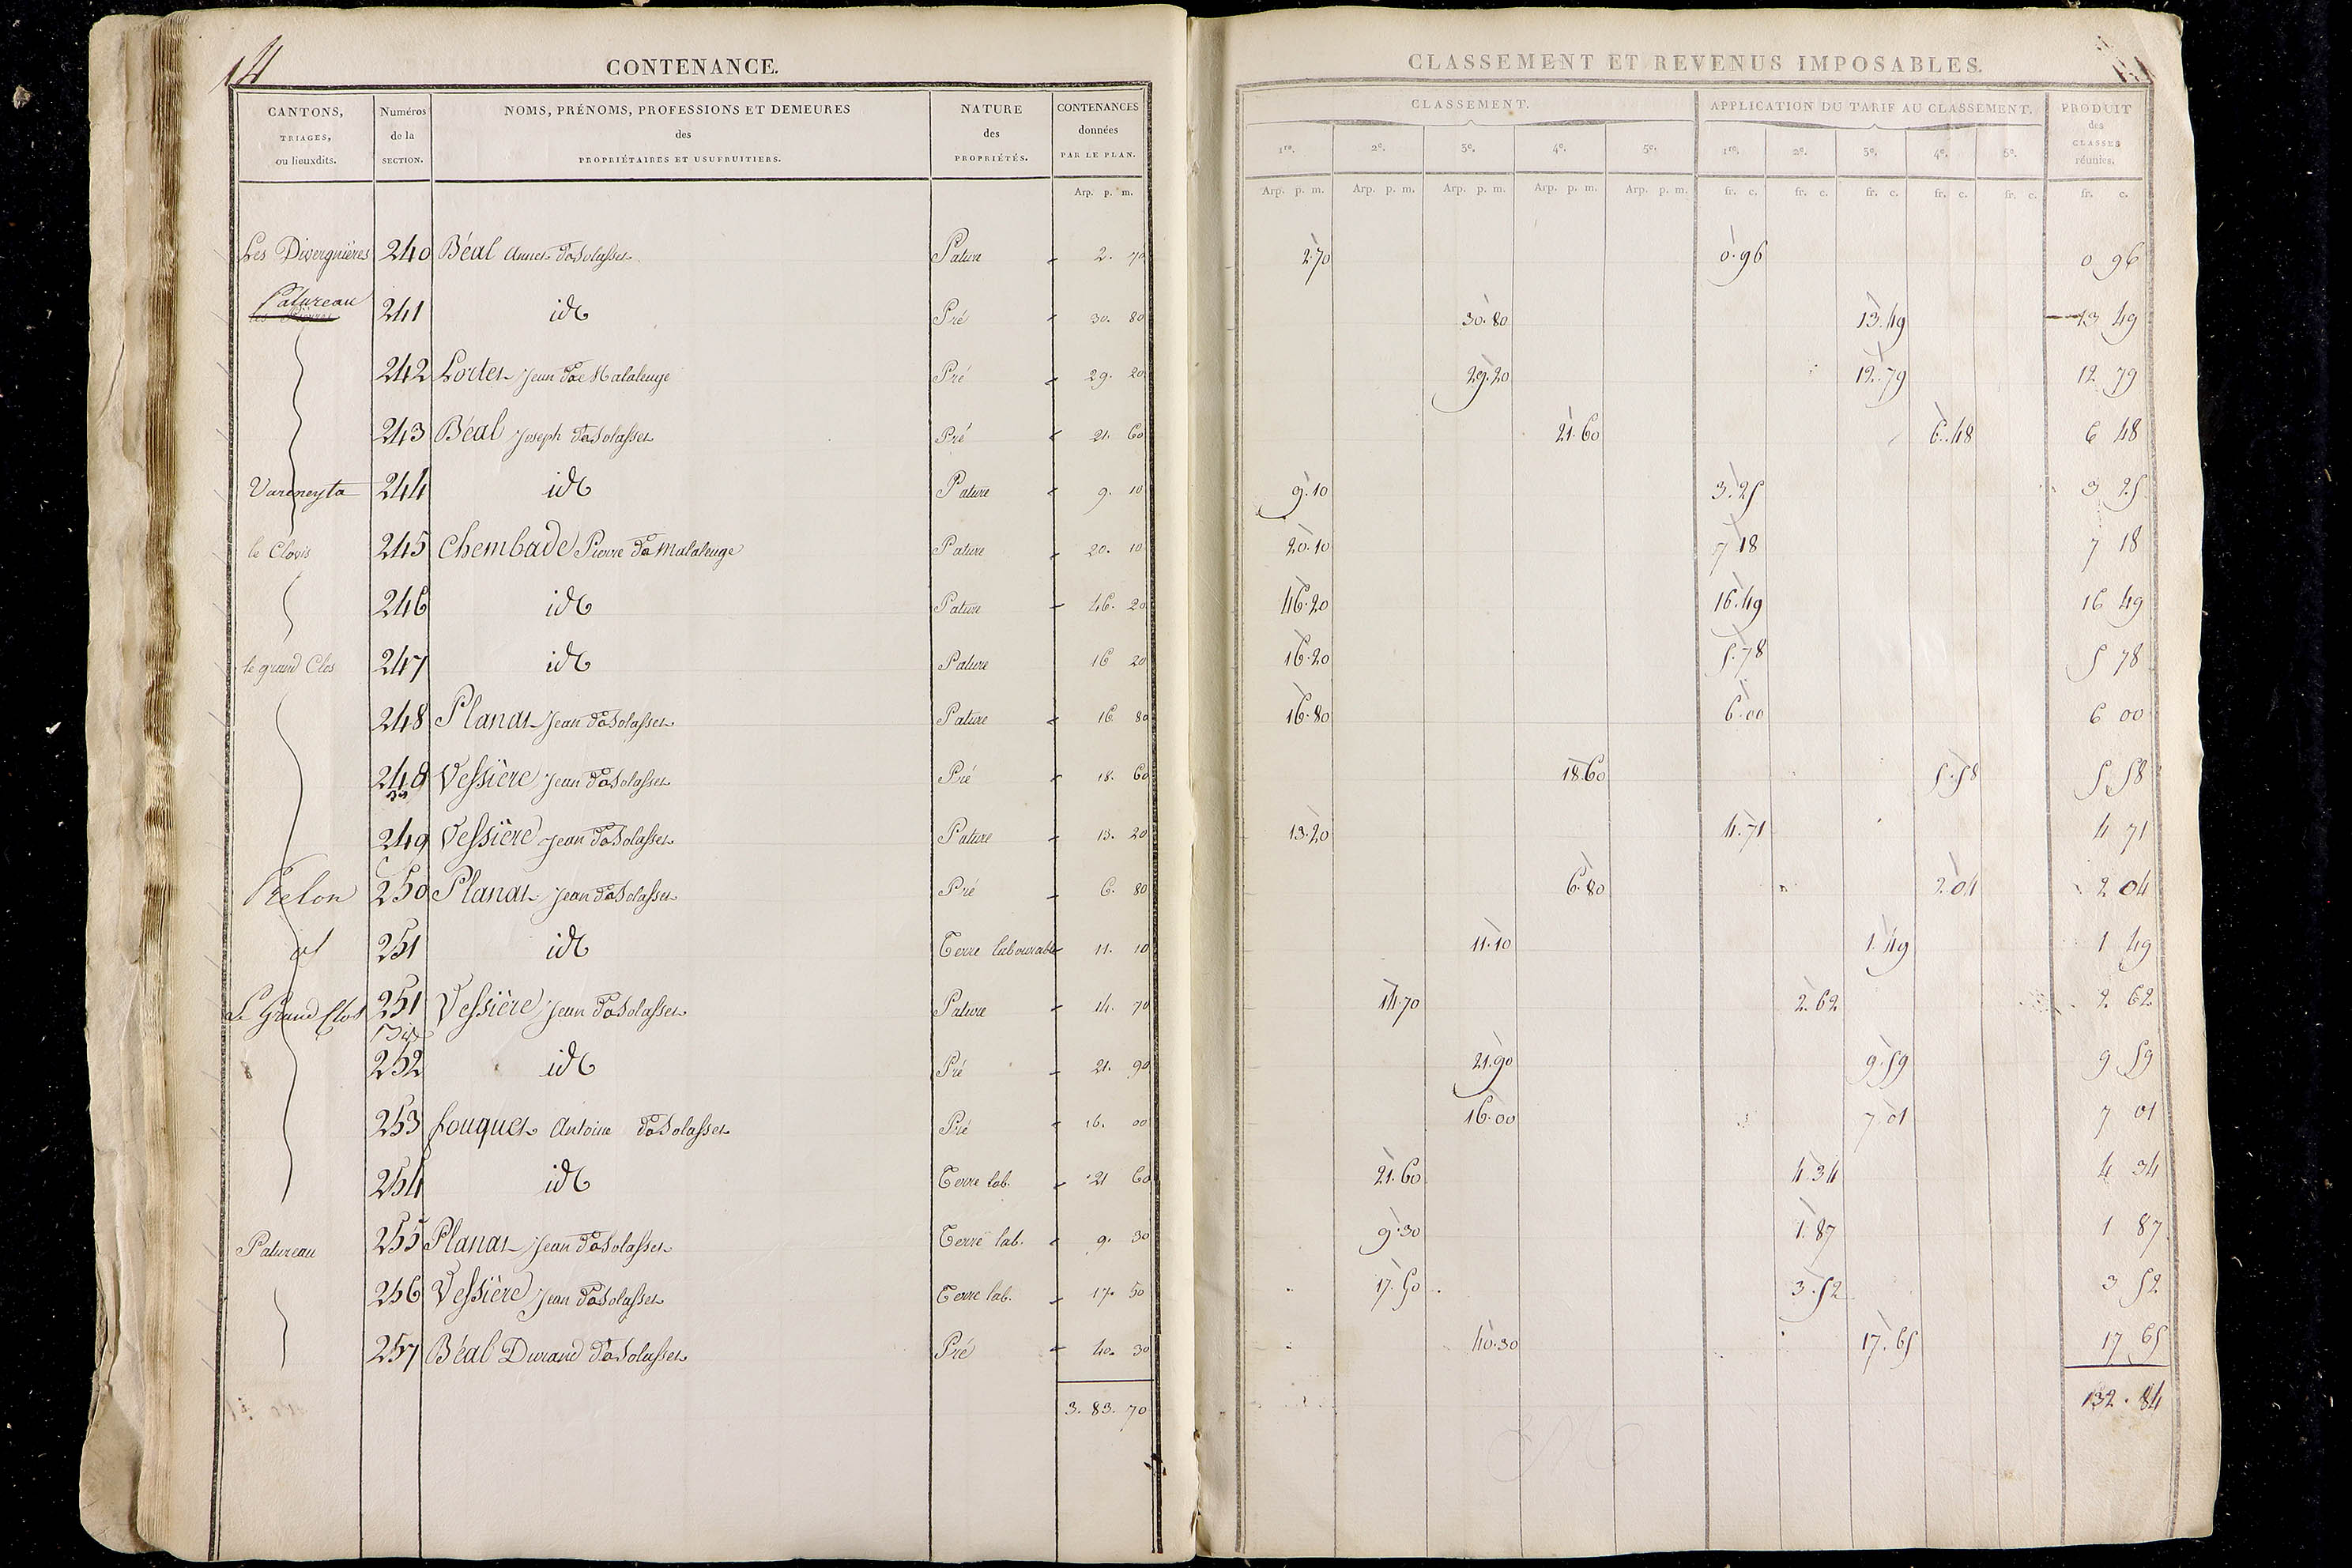 14
CONTENANCE.
CANTONS, TRIAGES, ou lieuxdits. Numéros de la SECTION. NOMS, PRÉNOMS, PROFESSIONS ET DEMEURES des PROPRIÉTAIRES ET USUFRUITIERS. NATURE des PROPRIÉTÉS. CONTENANCES données PAR LE PLAN.
Arp. p. m.
CLASSEMENT ET REVENUS IMPOSABLES.
CLASSEMENT. APPLICATION DU TARIF AU CLASSEMENT. PRODUIT des CLASSES réunies.
1re. 2e. 3e. 4e. 5e. 1re. 2e. 3e. 4e. 5e.
Arp. p. m. Arp. p. m. Arp. p. m. Arp. p. m. Arp. p. m. fr. c. fr. c. fr. c. fr. c. fr. c. fr. c.
Les Divergnières 240 Béal Annet Pature 2. 70 2.70 0.96 0 96
Patureau 241 id Pré 30. 80 30.80 13.49 13 49
242 Jean Pré 29. 20 29.20 12.79 12 79
243 Béal Joseph Pré 21. 60 21.60 6.48 6 48
Vareneyta 244 id Pature 9. 10 9.10 3.25 3 25
le Clovis 245 Chembade Pierre Malaleuge Pature 20. 10 20.10 7 18 7 18
246 id Pature 46. 20 46.20 16.49 16 49
le grand Clos 247 id Pature 16 20 16.20 5.78 5 78
248 Planat Jean Pature 16 80 16.80 6.00 6 00
248 Vessière Jean Pré 18. 60 18.60 5.58 5 58
249 Vessière Jean Pature 13. 20 13.20 4.71 4 71
250 Planat Jean Pré 6. 80 6.80 2.04 2 04
id 251 id Terre labourable 11. 10 11.10 1.49 1 49
Le Grand Clos 251 Bis Vessière Jean Pature 14. 70 14.70 2.62 2 62
252 id Pré 21. 90 21.90 9.59 9 59
253 fouquet Antoine Pré 16. 00 16.00 7 01 7 01
254 id Terre lab. 21 60 21.60 4.34 4 34
Patureau 255 Planat Jean Terre lab. 9. 30 9.30 1.87 1 87
256 Vessière Jean Terre lab. 17. 50 17.50 3.52 3 52
257 Béal Durand Pré 40. 30 40.30 17.65 17 65
3. 83. 70 132. 84